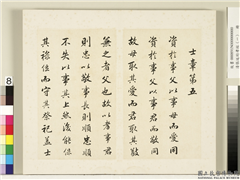 士章第五
資於事父以事母而愛同
資於事父以事君而敬同
故母取其愛而君取其敬
兼之者父也故以孝事君
則忠以敬事長則順忠順
不失以事其上然後能保
其祿位而守其祭祀蓋士
8